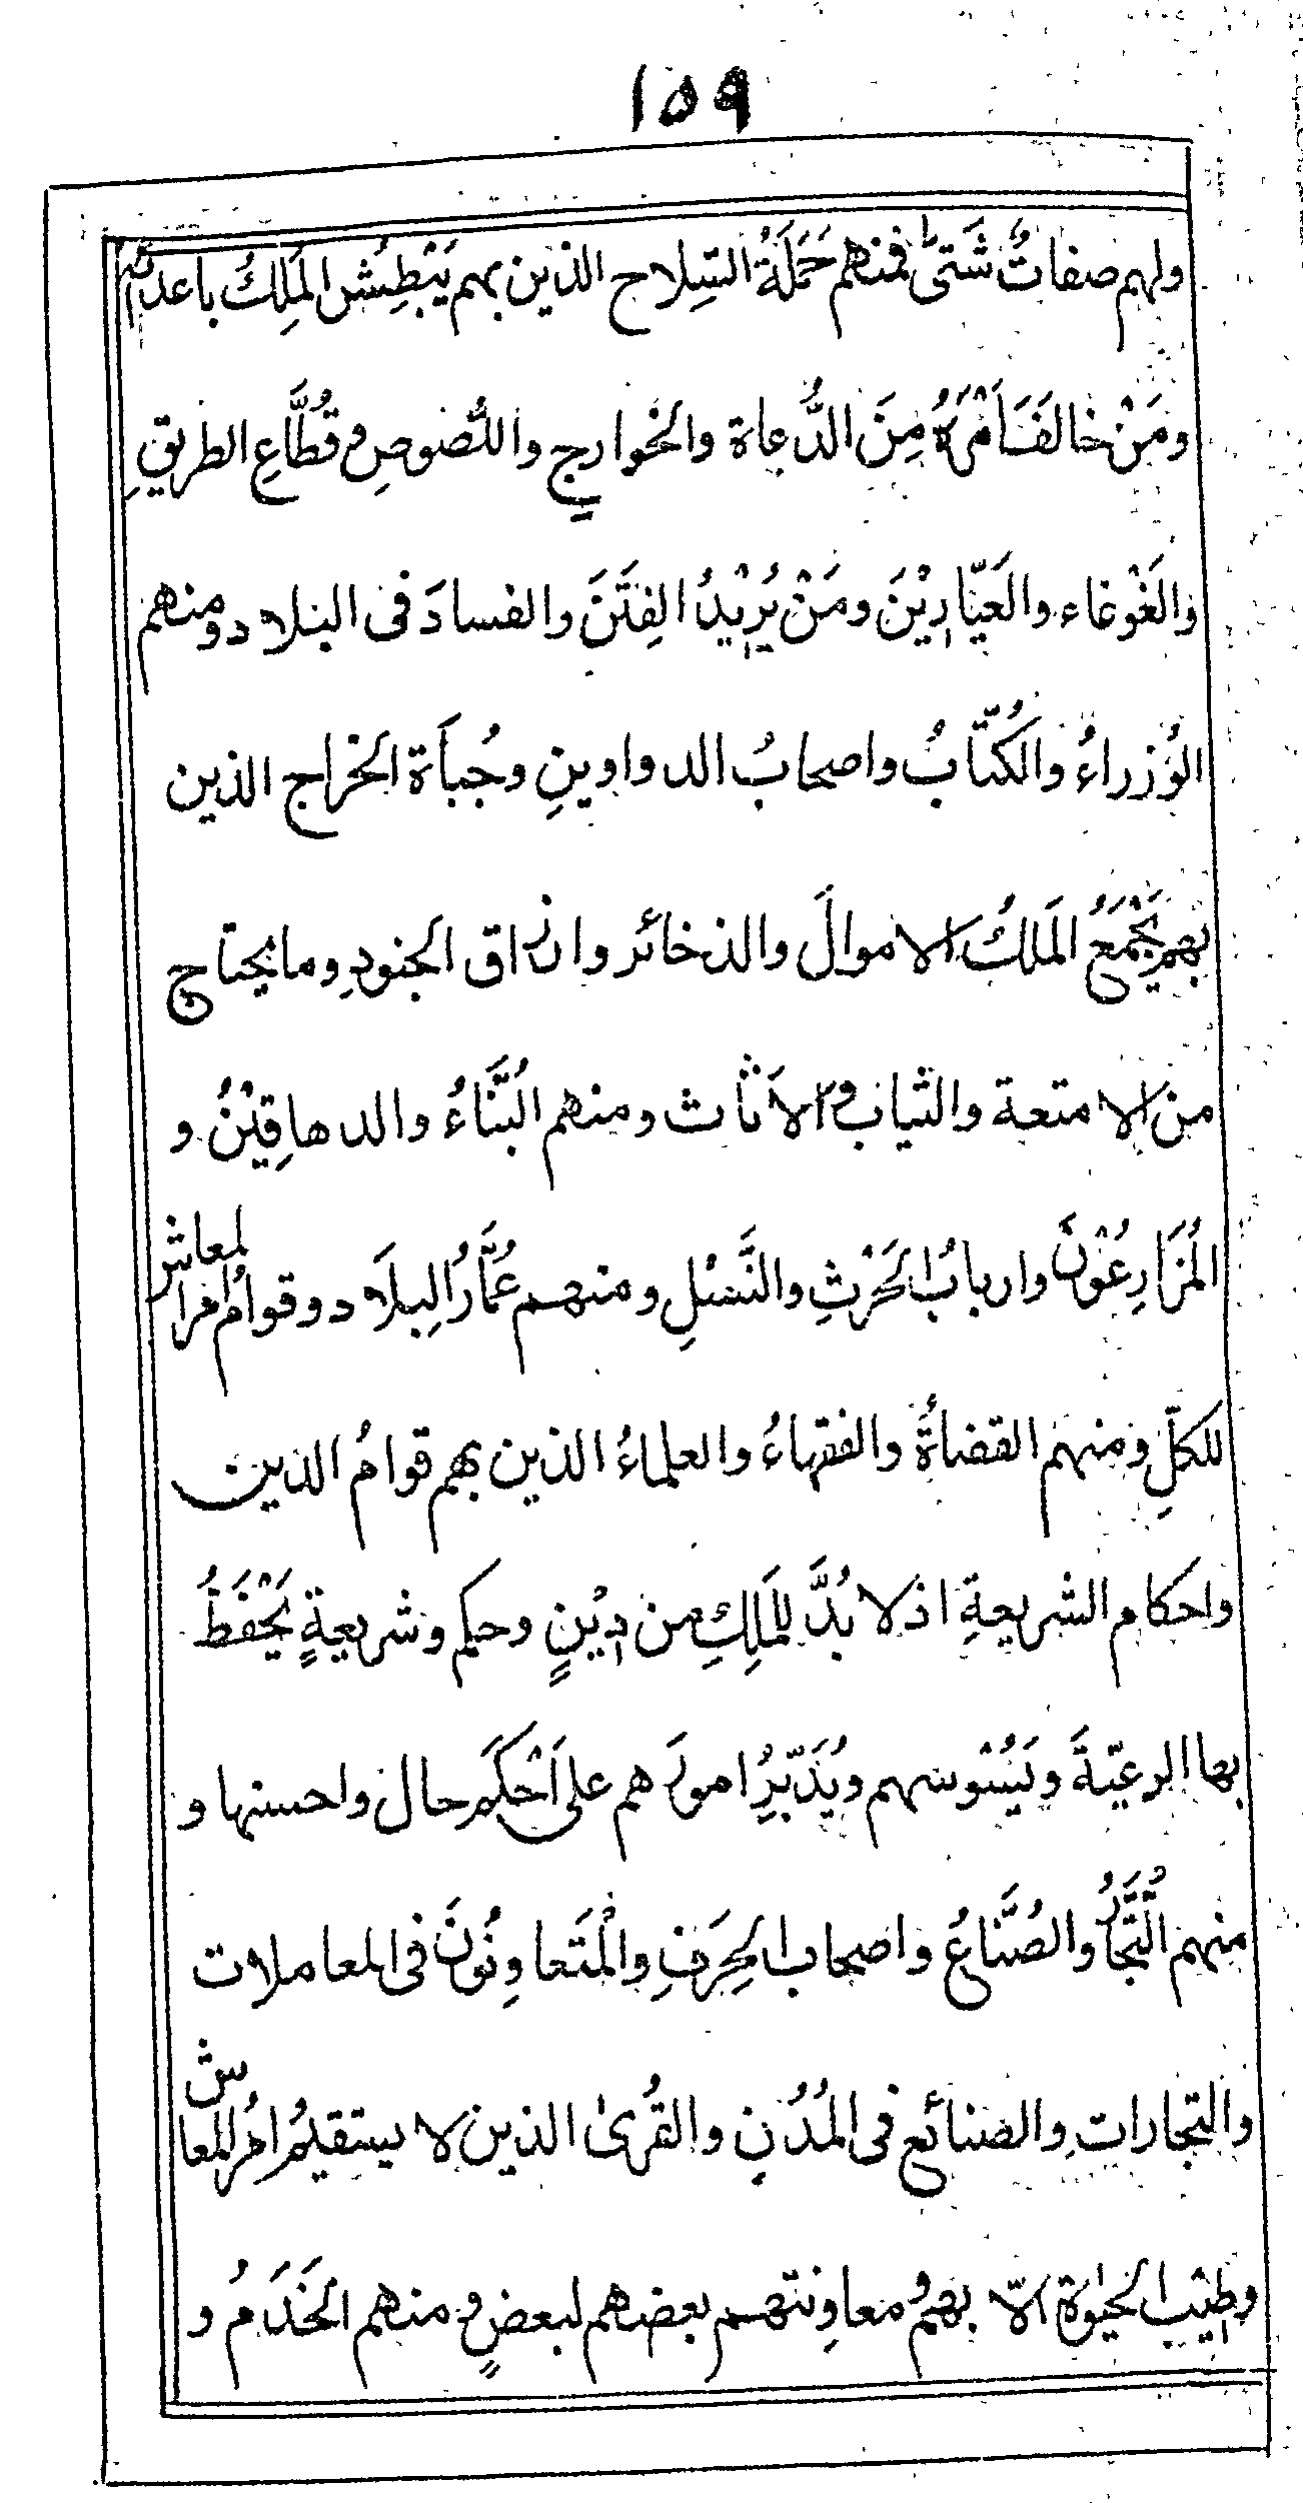 ١٥٩
ولهم صفاتٌ شَتىّٰ فمنهم حَمَلَةُ السِلاح الذين بهم يَبْطِشُ المَلِكُ باعدائه
ومَنْ خالفَ اَمْرَهُ مِنَ الدُّعاة والخوارجِ واللُّصوصِ وقُطَّاعِ الطريقِ
والغَوْغاء والعَيّارِيْنَ ومَنْ يُرِيْدُ الفِتَنَ والفسادَ فى البلاد ومنهم
الوُزراءُ والكُتّابُ واصحابُ الدواوينِ وجُباَة الخراج الذين
بهم يَجْمَعُ المَلكُ الاموالَ والذخائر وارزاق الجنودِ وما يحتاج
من الامتعة والثياب والاَثاث ومنهم البُنَّاءُ والدهاقِيْنُ و
المُزَارِعُوْنَ واربابُ الحَرْثِ والنَّسْلِ ومنهم عُمَّارُ البِلَاد وقوامُ امر المعاش
للكلِّ ومنهم القضاةُ والفقهاءُ والعلماءُ الذين بهم قوامُ الدين
واحكام الشريعةِ اذ لا بُدَّ للمَلِكِ من دِيْنٍ وحكم وشريعةٍ يَحْفَظُ
بها الرعيّةَ ويَسُوْسهم ويُدَبِّرُ امورَهم على اَحْكَمِ حال واحسنها و
منهم التُّجَّارُ والصُنَّاعُ واصحاب الحِرَفِ والْمُتَعاوِنُونَ فى المعاملات
والتجاراتِ والصنائع فى المُدُنِ والقُرىٰ الذين لا يستقيمُ امرُ المعاش
وطِيْبُ الحيٰوة الّا بهمْ ومعاوِنتهم بعضهم لبعضٍ ومنهم الخَدَمُ و